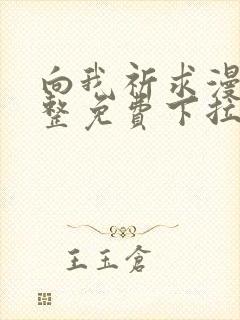 向我祈求漫
整免费下拉
王玉仓